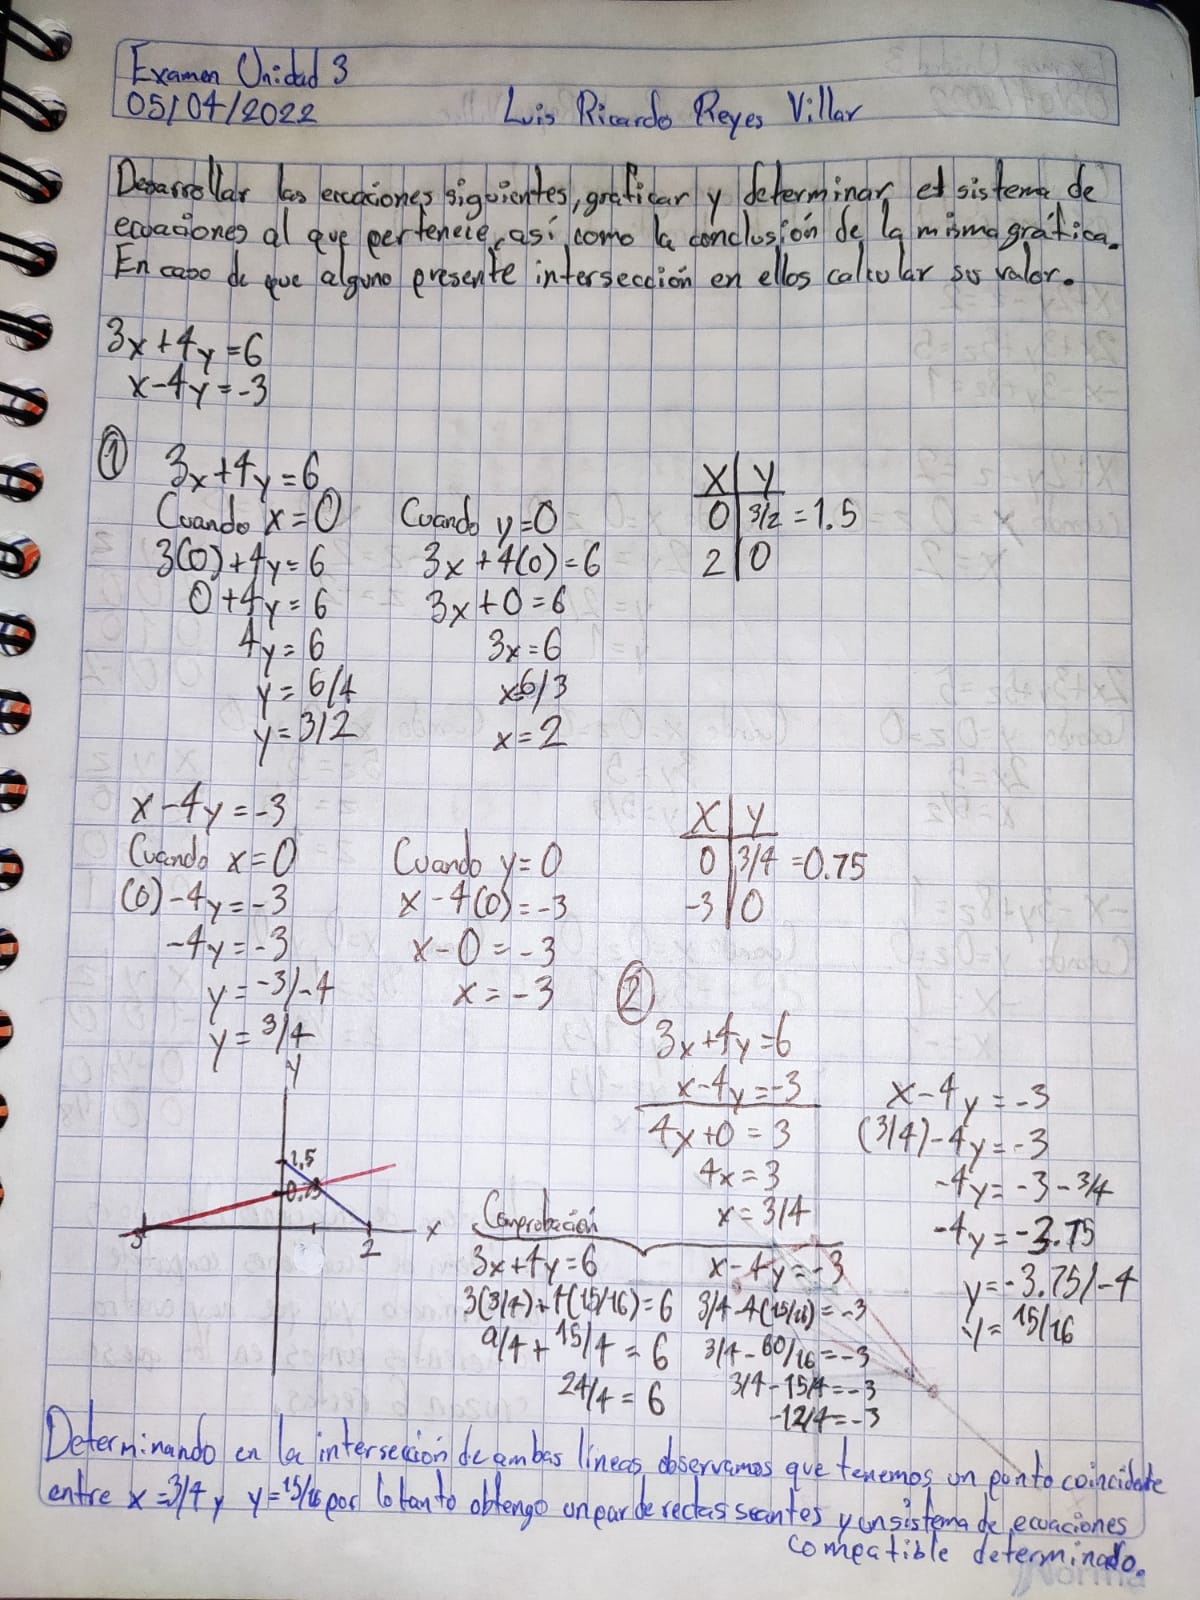 Examen Unidad 3
05/04/2022 Luis Ricardo Reyes Villar
Desarrollar las ecuaciones siguientes, graficar y determinar el sistema de
ecuaciones al que pertenece, así como la conclusión de la misma gráfica.
En caso de que alguno presente intersección en ellos calcular su valor.
3x+4y=6
x-4y=-3
① 3x+4y=6
Cuando x=0
3(0)+4y=6
0+4y=6
4y=6
y=6/4
y=3/2
Cuando y=0
3x+4(0)=6
3x+0=6
3x=6
x=6/3
x=2
X | Y
0 | 3/2 =1.5
2 | 0
x-4y=-3
Cuando x=0
(0)-4y=-3
-4y=-3
y=-3/-4
y=3/4
Cuando y=0
x-4(0)=-3
x-0=-3
x=-3
X | Y
0 | 3/4 =0.75
-3 | 0
y
1.5
0.75
-3
2
x
②
3x+4y=6
x-4y=-3
4x+0=3
4x=3
x=3/4
x-4y=-3
(3/4)-4y=-3
-4y=-3-3/4
-4y=-3.75
y=-3.75/-4
y=15/16
Comprobación
3x+4y=6
3(3/4)+4(15/16)=6
9/4+15/4=6
24/4=6
x-4y=-3
3/4-4(15/16)=-3
3/4-60/16=-3
3/4-15/4=-3
-12/4=-3
Determinando en la intersección de ambas líneas observamos que tenemos un punto coincidente
entre x=3/4 y y=15/16 por lo tanto obtengo un par de rectas secantes y un sistema de ecuaciones
compatible determinado.
Norma